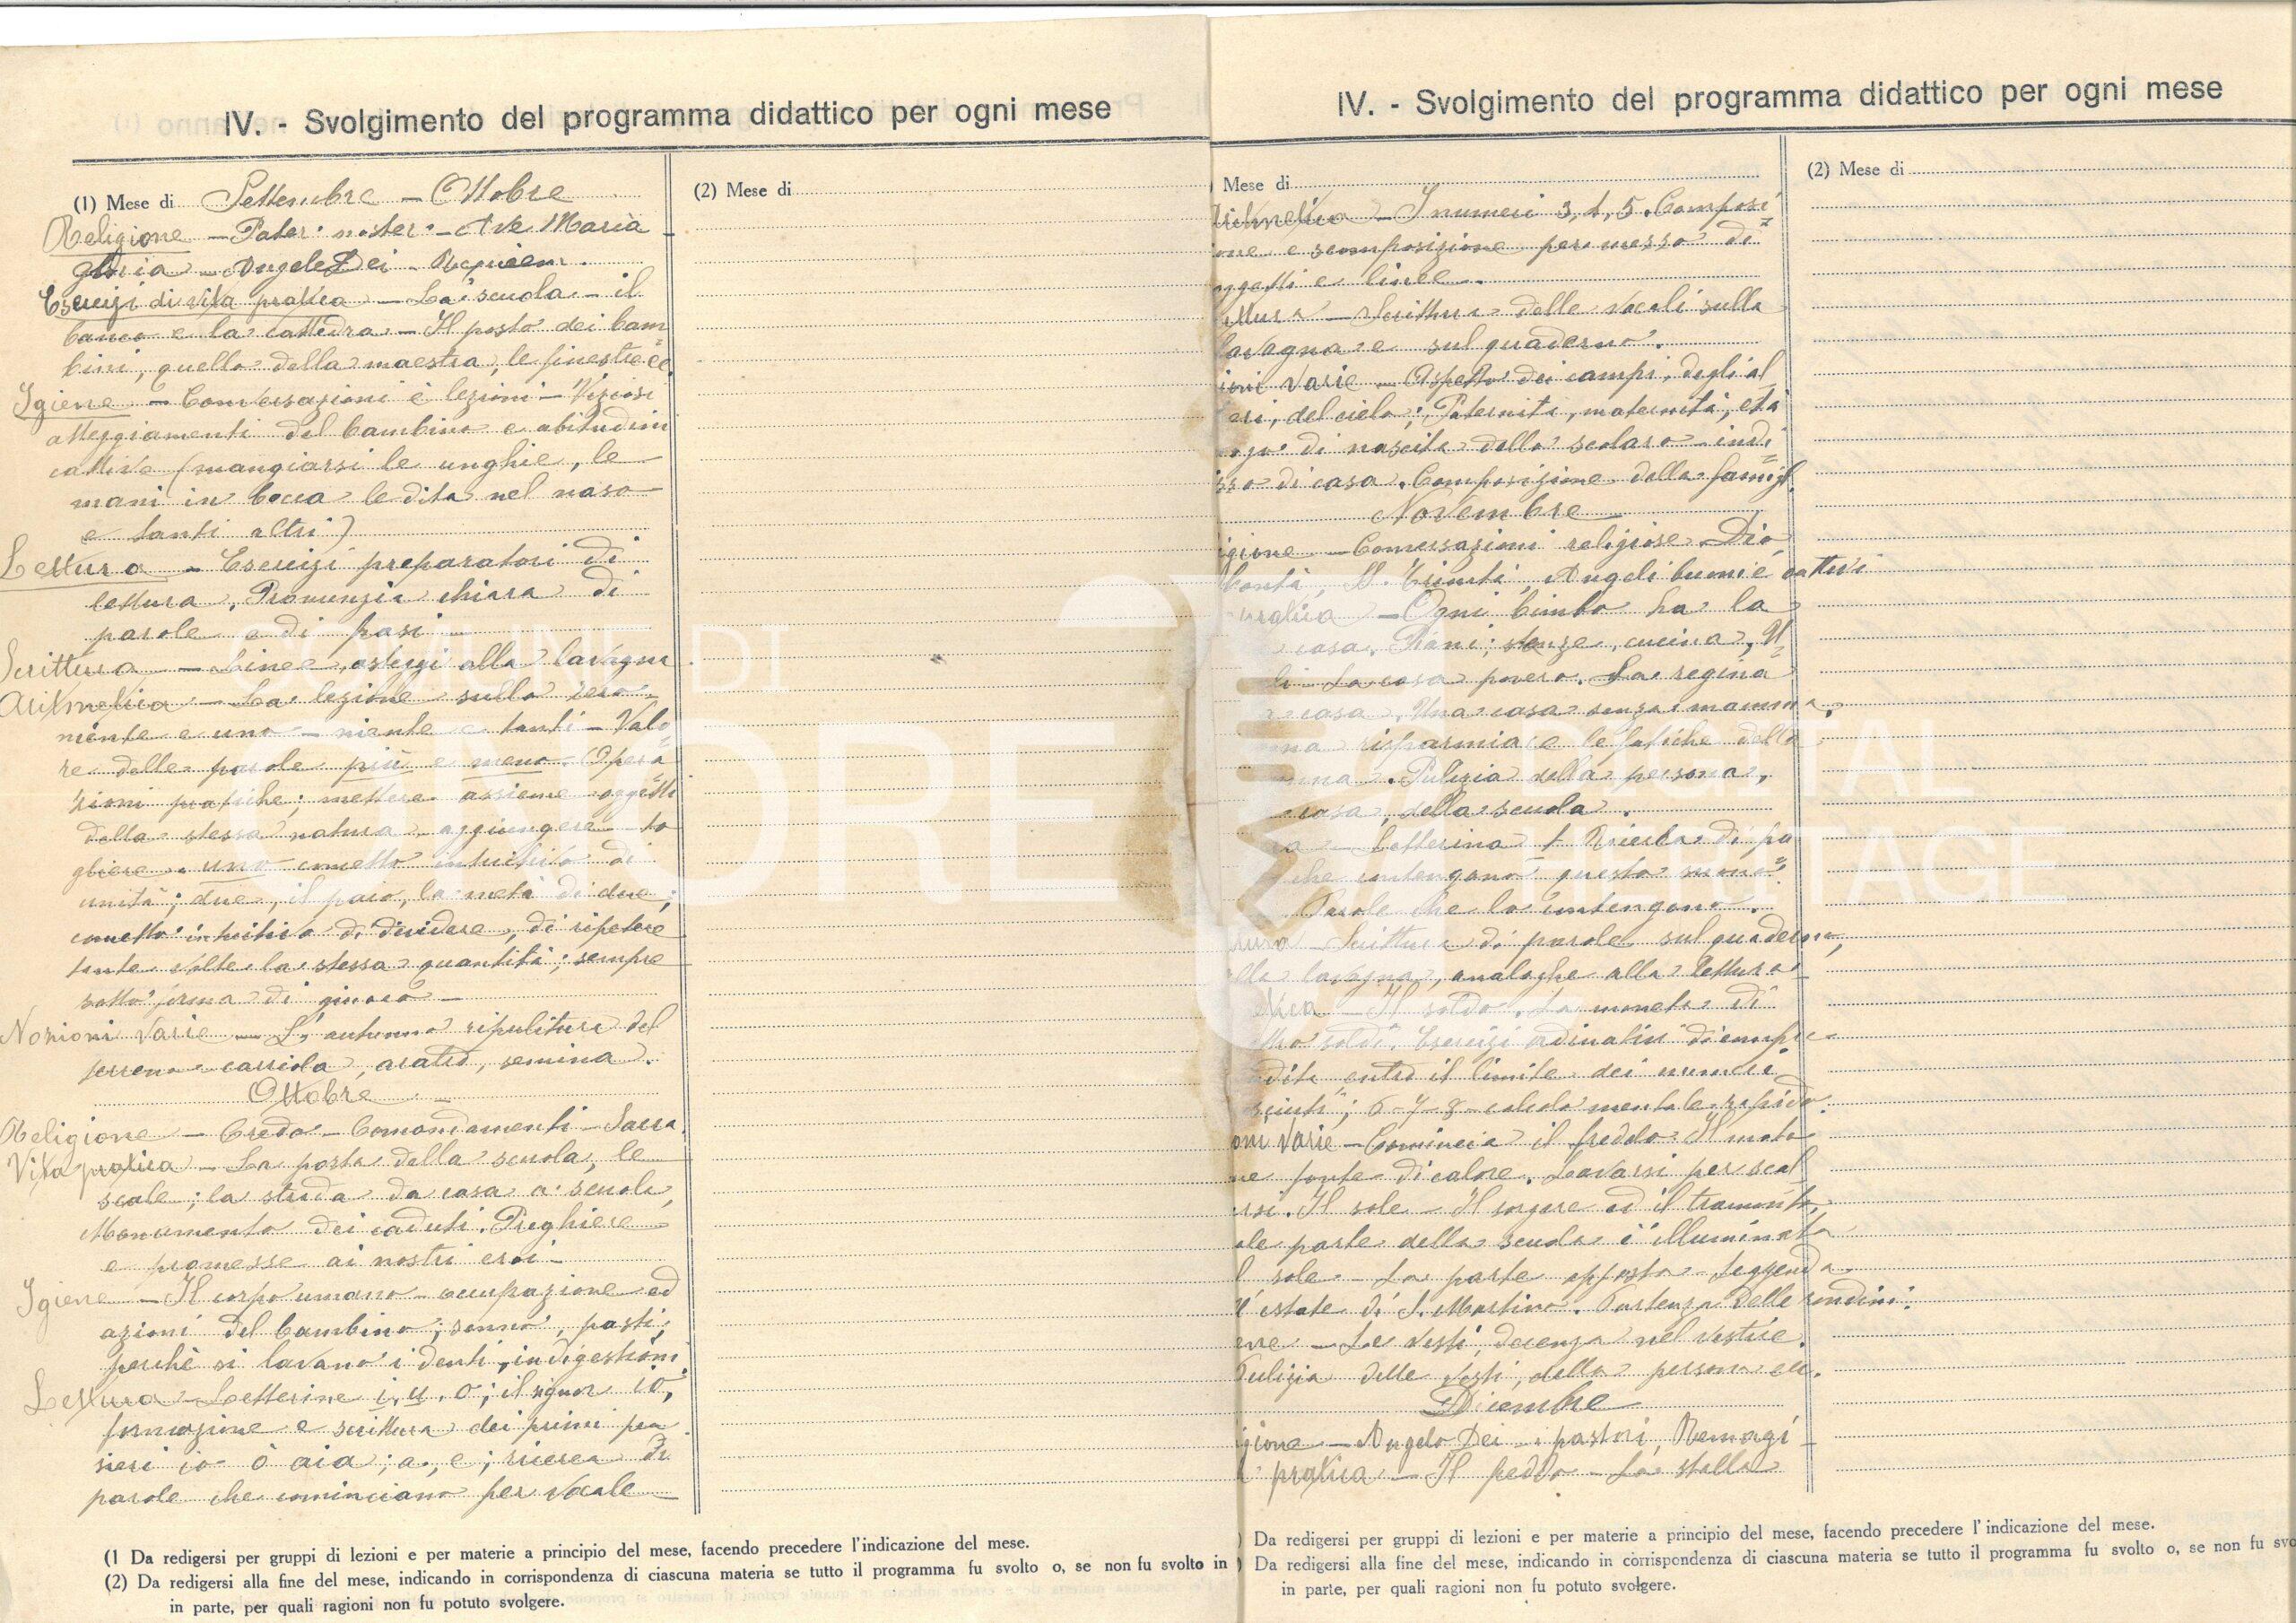 IV. - Svolgimento del programma didattico per ogni mese
(1) Mese di Settembre - Ottobre
(2) Mese di
Religione - Pater noster - Ave Maria
gloria - Angele Dei - Requiem.
Esercizi di vita pratica - La scuola - il
banco e la cattedra - Il posto dei bam=
bini, quello della maestra, le finestre ec.
Igiene - Conversazioni e lezioni - Viziosi
atteggiamenti del bambino e abitudini
cattive (mangiarsi le unghie, le
mani in bocca le dita nel naso
e tanti altri)
Lettura - Esercizi preparatori di
lettura. Pronunzia chiara di
parole e di frasi -
Scrittura - Linee, asteggi alla lavagna
Aritmetica - La lezione sullo zero
niente e uno - niente e tanti - Valo=
re delle parole più e meno. Opera=
zioni pratiche; mettere assieme oggetti
della stessa natura aggiungere - to
gliere - uno concetto intuitivo di
unità; due, il paio, la metà di due;
concetto intuitivo di dividere, di ripetere
tante volte la stessa quantità; sempre
sotto forma di giuoco -
Nozioni varie - L'autunno ripulitura del
terreno carriola, aratro, semina.
Ottobre -
Religione - Credo - Comandamenti - Sacra.
Vita pratica - La porta della scuola, le
scale; la strada da casa a scuola,
Monumento dei caduti. Preghiere
e promesse ai nostri eroi -
Igiene - Il corpo umano - occupazione ed
azioni del bambino; sonno, pasti,
perchè si lavano i denti, indigestioni.
Lettura - Letterine i, u, o; il signor io;
formazione e scrittura dei primi pen
sieri io ò aia; a, e; ricerca di
parole che cominciano per vocale -
(1 Da redigersi per gruppi di lezioni e per materie a principio del mese, facendo precedere l'indicazione del mese.
(2) Da redigersi alla fine del mese, indicando in corrispondenza di ciascuna materia se tutto il programma fu svolto o, se non fu svolto in
in parte, per quali ragioni non fu potuto svolgere.
IV. - Svolgimento del programma didattico per ogni mese
) Mese di
(2) Mese di
ritmetica - I numeri 3, 4, 5. Composi=
ione e scomposizione per mezzo di
ggetti e linee.
ittura - Scrittura delle vocali sulla
lavagna e sul quaderno.
ioni varie - Aspetto dei campi, degli al
eri, del cielo; Paternità, maternità, età
ogo di nascita dello scolaro - indi=
izzo di casa. Composizione della famigl.
Novembre
igione - Conversazioni religiose. Dio,
bontà, SS. Trinità, Angeli buoni e cattivi
pratica - Ogni bimbo ha la
casa. Piani; stanze, cucina,
li La casa povera. La regina
casa. Una casa senza mamma.
risparmiare le fatiche della
mma. Pulizia della persona,
casa, della scuola.
a - Letterina t Ricerca di pa
che contengono questo suono.
Parole che lo contengono.
tura - Scrittura di parole sul quaderno,
lla lavagna, analoghe alla lettura
etica - Il soldo. La moneta di
ttro soldi. Esercizi ordinativi di compe-
dita entro il limite dei numeri
sciuti; 6-7-8 - calcolo mentale rapido.
oni varie - Comincia il freddo. Il moto
me fonte di calore. Lavarsi per scal
rsi. Il sole - Il sorgere ed il tramonto,
ale parte della scuola è illuminata
l sole - La parte opposta - Leggenda
l'estate di S. Martino. Partenza delle rondini.
ene - Le vesti, decenza nel vestire.
Pulizia delle vesti, della persona ecc.
Dicembre
igione - Angelo Dei - i pastori, Remagi
pratica - Il freddo - La stalla
) Da redigersi per gruppi di lezioni e per materie a principio del mese, facendo precedere l'indicazione del mese.
) Da redigersi alla fine del mese, indicando in corrispondenza di ciascuna materia se tutto il programma fu svolto o, se non fu svo
in parte, per quali ragioni non fu potuto svolgere.
COMUNE DI
DIGITAL
HERITAGE